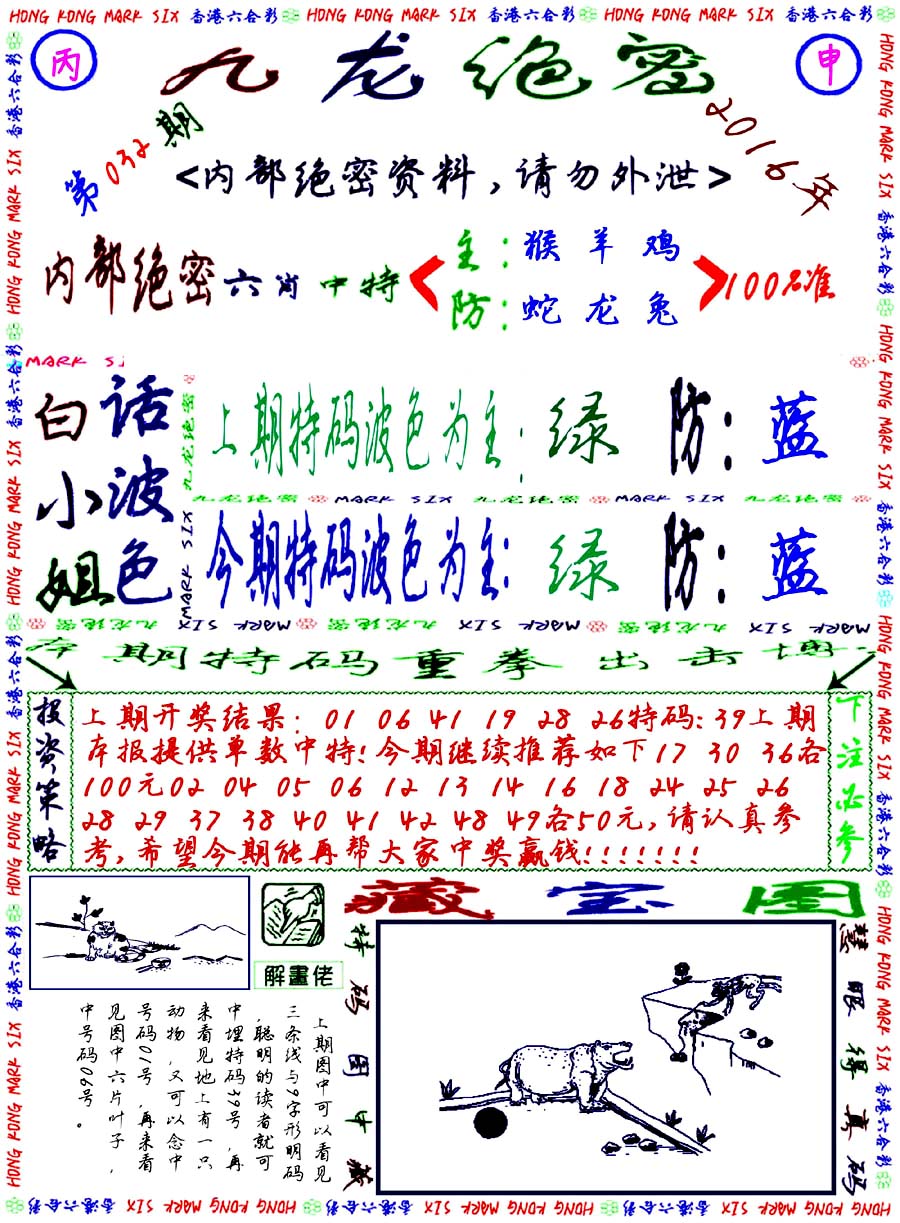 HONG KONG MARK SIX 香港六合彩 HONG KONG MARK SIX 香港六合彩 HONG KONG MARK SIX 香港六合彩
丙
九龙绝密
申
第032期
2016年
<内部绝密资料,请勿外泄>
内部绝密六肖中特
主:猴羊鸡
防:蛇龙兔
100%准
MARK SI
白话小波姐色
上期特码波色为主:绿 防:蓝
九龙绝密 MARK SIX 九龙绝密 MARK SIX 九龙绝密
今期特码波色为主:绿 防:蓝
MARK SIX 九龙绝密 MARK SIX 九龙绝密 MARK SIX 九龙绝密
本期特码重拳出击博
投资策略
上期开奖结果:01 06 41 19 28 26特码:39上期
本报提供单数中特!今期继续推荐如下17 30 36各
100元02 04 05 06 12 13 14 16 18 24 25 26
28 29 37 38 40 41 42 48 49各50元,请认真参
考,希望今期能再帮大家中奖赢钱!!!!!!!
下注必参
藏宝图
解畫佬
上期图中可以看见
三条线与9字形明码
,聪明的读者就可
中埋特码39号,再
来看见地上有一只
动物,又可以念中
号码01号,再来看
见图中六片叶子,
中号码06号。
特码图中藏
慧眼得真码
HONG KONG MARK SIX 香港六合彩 HONG KONG MARK SIX 香港六合彩 HONG KONG MARK SIX 香港六合彩